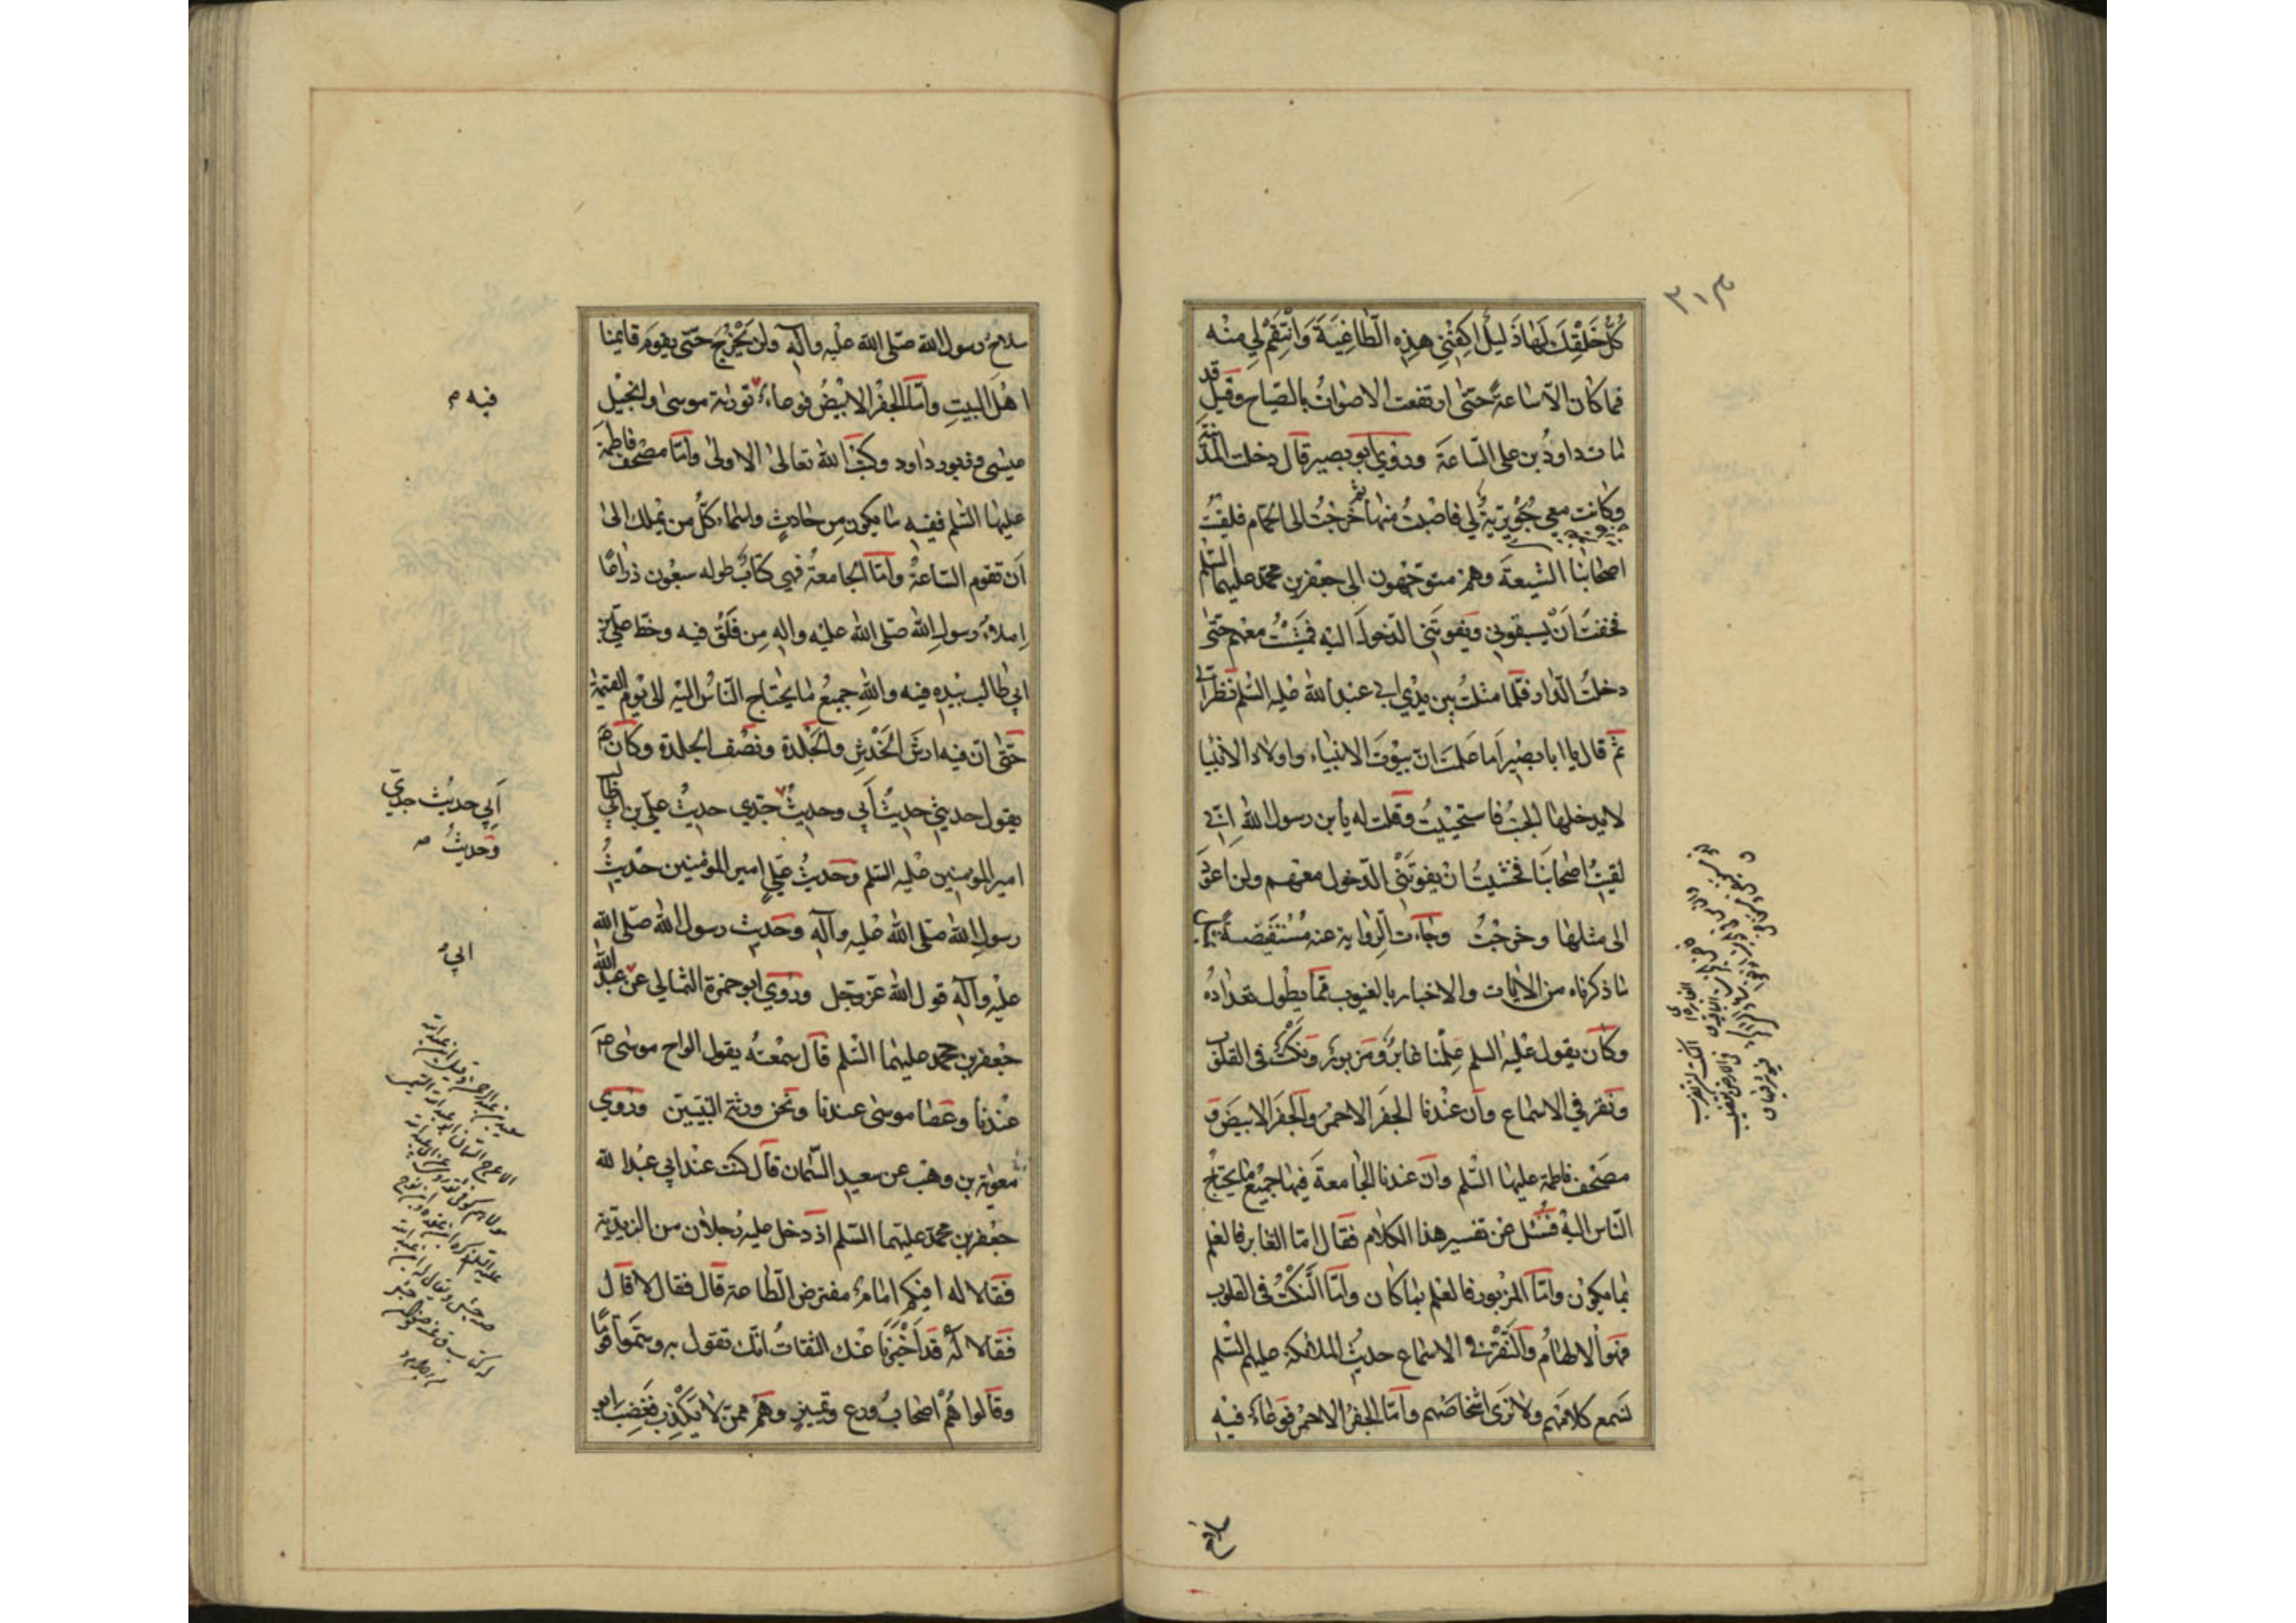 ٣١٣
كُلُّ خَلْقِكَ لَهٰا ذَليلٌ اكفِنى هذِهِ الطّاغِيَةَ وَانْتَقِمْ لِي مِنْه
فما كان الّا ساعةً حتّى ارتفعت الاصواتُ بالصّياح وقيل قد
مات داودُ بن علي السّاعة وروي ابو بصير قال دخلت المدينة
وكانت معي جُوَيْرِيَةٌ لي فاصبتُ منها ثم خرجتُ الى الحمام فلقيتُ
اصحابنا الشيعة وهم متوجّهون الى جعفر بن محمّد عليهما السّلم
فخفتُ اَنْ يسبقوني ويفوتَني الدّخول اليه فمشيْتُ معهم حتّى
دخلتُ الدّار فلمّا مثلتُ بين يدي ابي عبد الله عليه السّلم نظر اليّ
ثمّ قال يا ابا بصير اَما علمتَ انّ بيوتَ الانبياء واولاد الانبيا
لا يدخلها الجنُبُ فاستحييتُ وقلت له يابن رسول الله انّي
لقيتُ اصحابَنا فخشيتُ ان يفوتَنِي الدّخول معهم ولن اعود
الى مثلها وخرجْتُ وجاءت الرّواية عنه مُسْتفيضةً بمثل
ما ذكرناه من الايات والاخبار بالغيوب ممّا يطول تعدادُه
وكان يقول عليه السلم عِلْمنا غابرٌ ومزبورٌ ونَكْتٌ في القلوب
ونقر في الاسماع وان عندنا الجفر الاحمرَ والجفر الابيضَ و
مصحف فاطمة عليها السّلم وان عندنا الجامعةَ فيها جميعُ ما يحتاجُ
النّاس اليه فسُئل عن تفسير هذا الكلام فقال امّا الغابر فالعلم
بما يكون وامّا المزبور فالعلم بما كان وامّا النَّكْتُ في القلوب
فهو الالهامُ والنّقرُ في الاسماع حديثُ الملائكة عليهم السّلم
نسمع كلامَهم ولا نرى اشخاصَهم وامّا الجفرُ الاحمرُ فوعاءٌ فيه
سلاحُ رسول الله صلّى الله عليه وآله ولن يَخْرُجَ حتّى يقومَ قايمُنا
اهْلَ البيتِ وامّا الجفْرُ الابيَضُ فوعاءٌ توراة موسى وانجيل
فيه
عيسى وزبور داود وكتبُ الله تعالى الاولى وامّا مصحف فاطمة
عليها السّلم ففيه ما يكون من حادثٍ واسماء كلِّ من يملك الى
اَن تقوم السّاعةُ وامّا الجامعةُ فهي كتابٌ طوله سبعُون ذراعًا
اِملاءُ رسول الله صلّى الله عليه واله مِن فَلَقِ فيه وخطّ علي بن
ابي طالب بيده فيه واللهِ جميعُ ما يحتاج النّاسُ اليه الى يوم القيمة
حتّى انّ فيه ارشَ الخَدْشِ والجَلْدة ونصف الجلدة وكان
يقول حديثي حديثُ اَبي وحديثُ جَدّي حديثُ عليّ بن ابي طالب
اَبي حديثُ جدّي
وَحديثُ
امير المؤمنين عليه السّلم وحديثُ عليٍّ امير المؤمنين حديثُ
رسول الله صلّى الله عليه وآله وحديث رسول الله صلّى الله
عليه وآله قول الله عزّ وجل وروي ابو حمزة الثّمالي عن عبد الله
ابي
جعفر بن محمد عليهما السّلم قال سمعته يقول الواح موسى
عنْدنا وعَصا موسى عندنا ونحن ورثة النّبيّين وروي
معوية بن وهْب عن سعيد السّمان قال كنت عند ابي عبد الله
جعفر بن محمّد عليهما السّلم اذ دخل عليه رجلان من الزيدية
فقالا له افيكم امامٌ مفترض الطّاعة قال فقال لا قال
فقالا له قد اَخْبَرَنا عنك الثقاتُ انّك تقول به وسَمّوا قومًا
وقالوا هُمْ اصحاب ورع وتمييز وهُمْ ممّن لا يكذب فغضب ابو